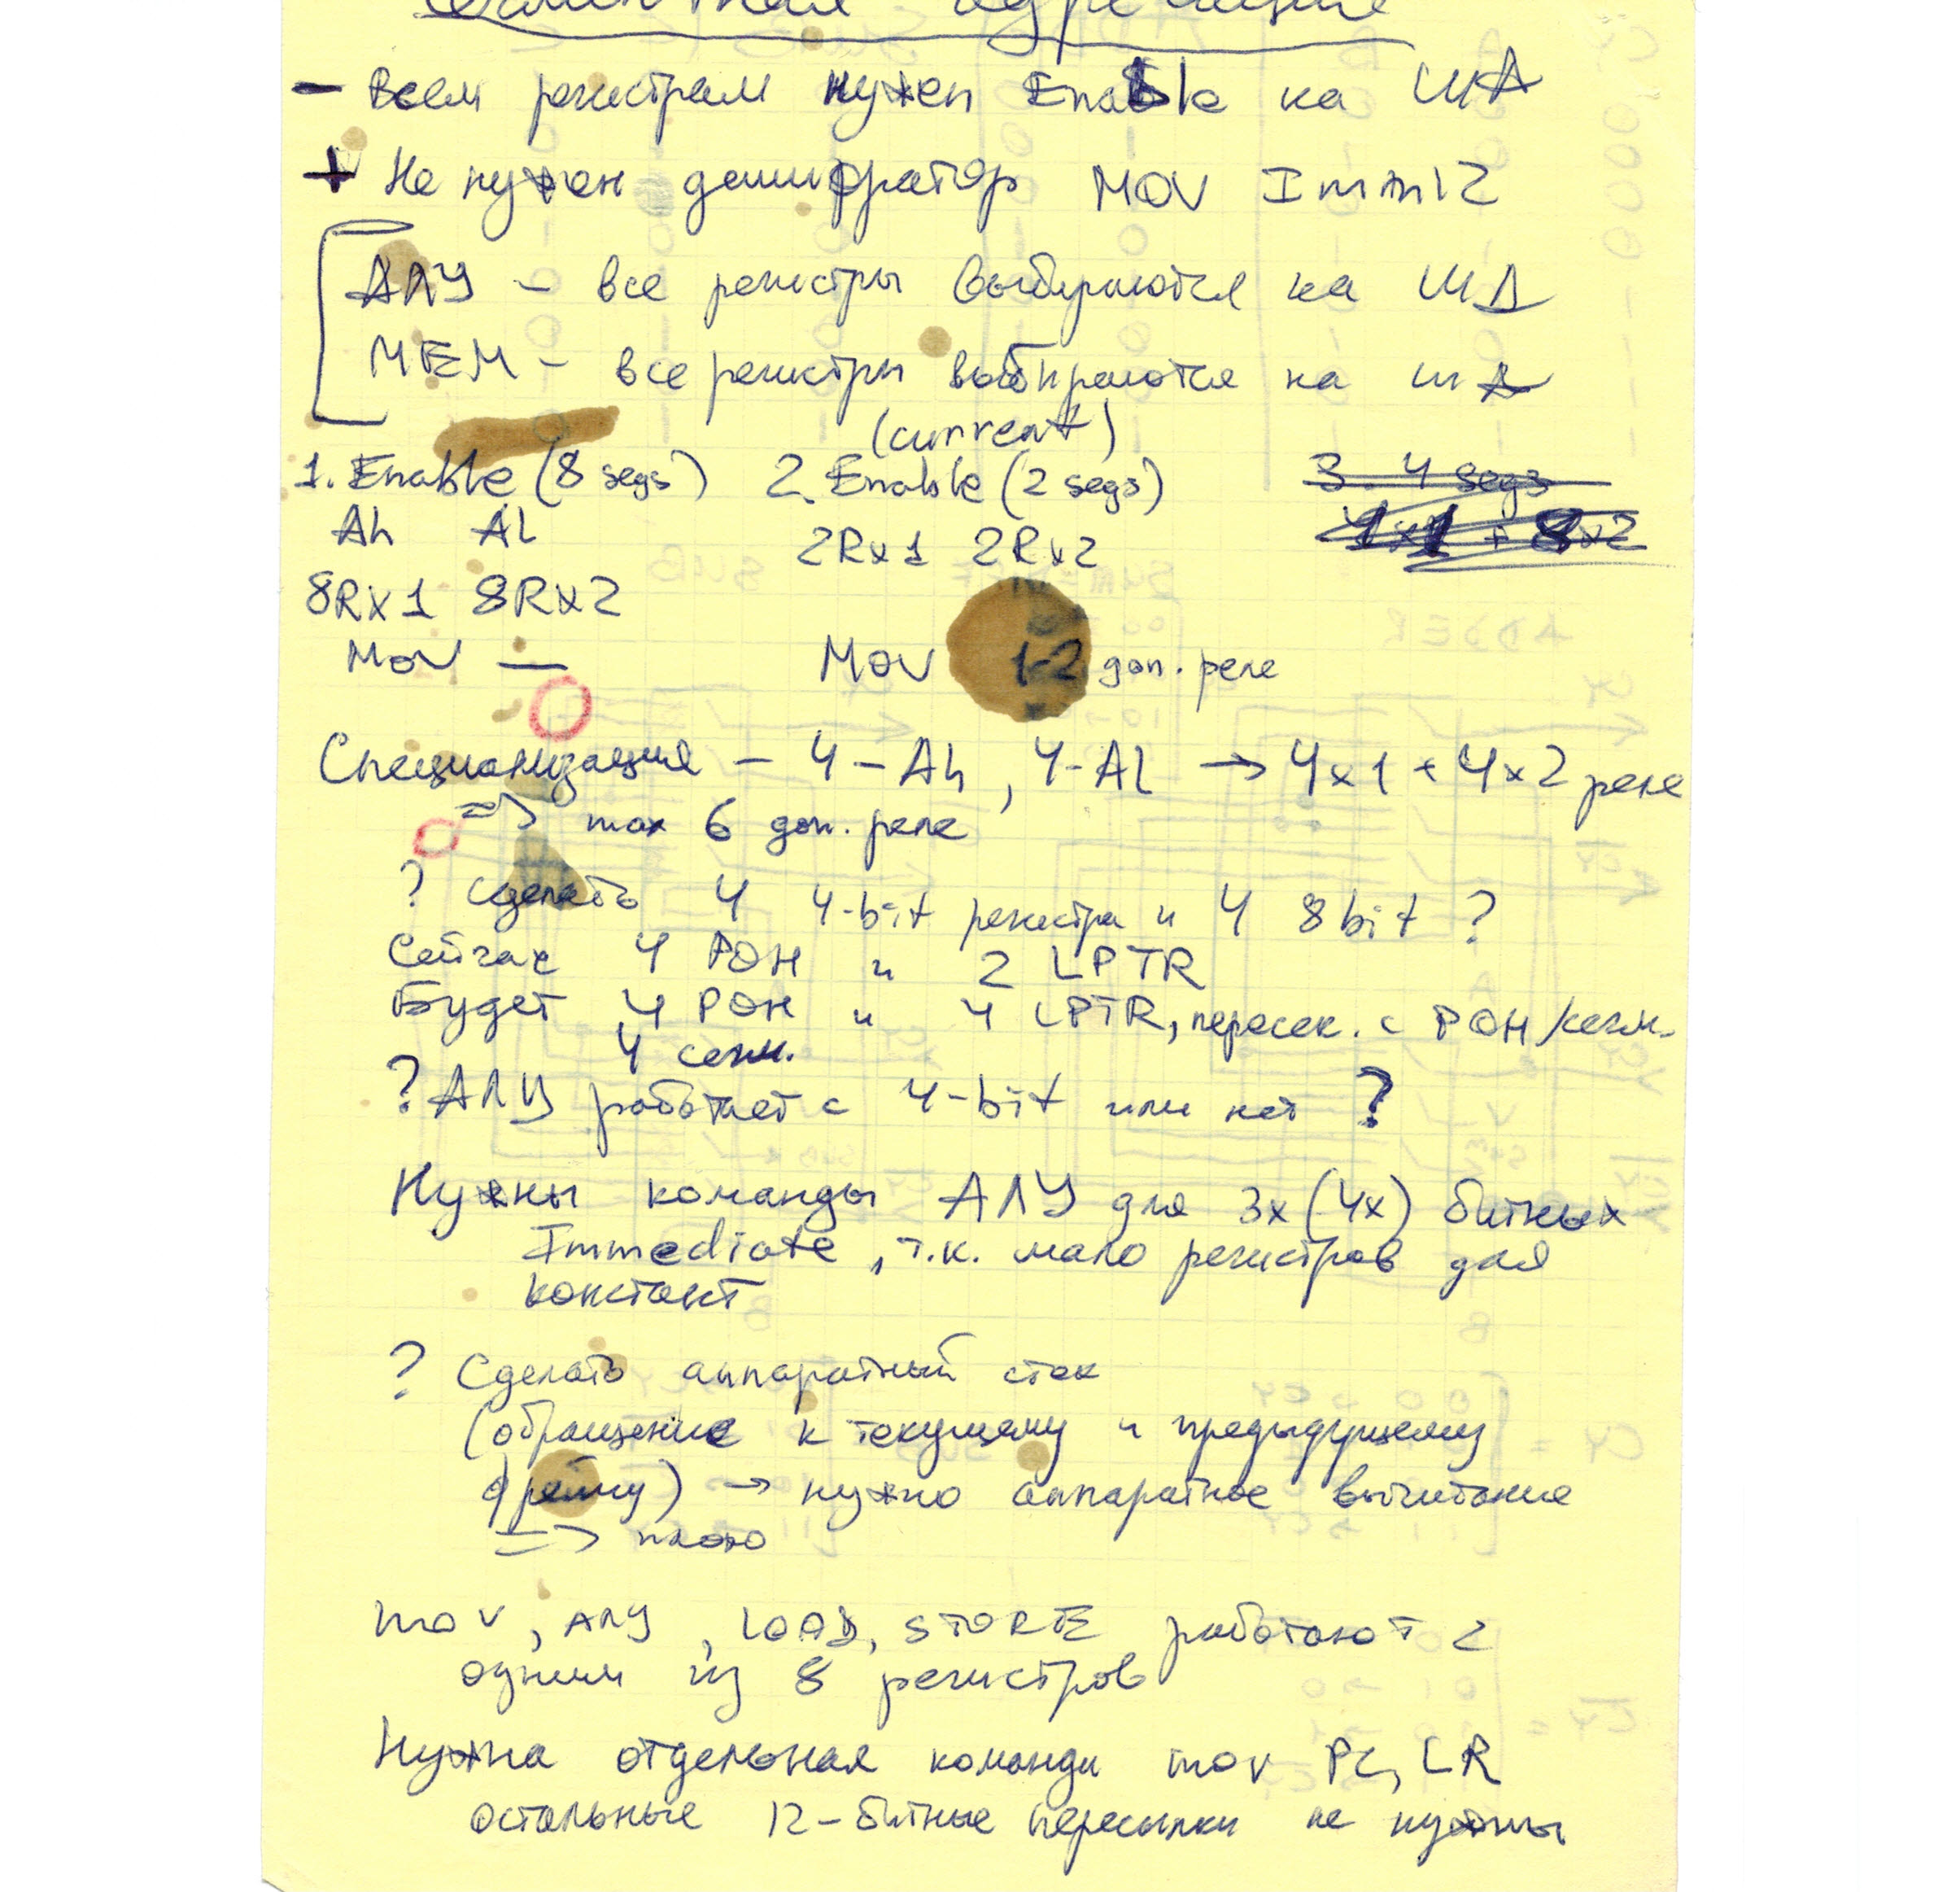 Сегментная адресация
- Всем регистрам нужен Enable на ША
+ Не нужен дешифратор MOV Imm12
АЛУ - все регистры выбираются на ШД
MEM - все регистры выбираются на ША
(current)
1. Enable (8 segs) 2. Enable (2 segs) 3. 4 segs
Ah Al
2Rx1 2Rx2
8Rx1 8Rx2
MOV — MOV 1-2 доп. реле
Специализация - 4-Ah, 4-Al → 4x1 + 4x2 реле
=> max 6 доп. реле
? Сделать 4 4-bit регистра и 4 8bit ?
Сейчас 4 РОН и 2 LPTR
Будет 4 РОН и 4 LPTR, пересек. с РОН/сегм.
4 сегм.
? АЛУ работает с 4-bit или нет ?
Нужны команды АЛУ для 3х(4х) битных
Immediate, т.к. мало регистров для
констант
? Сделать аппаратный стек
(обращение к текущему и предыдущему
фрейму) → нужно аппаратное вычитание
=> плохо
mov, АЛУ, LOAD, STORE работают с
одним из 8 регистров
Нужна отдельная команда mov PC, LR
остальные 12-битные пересылки не нужны